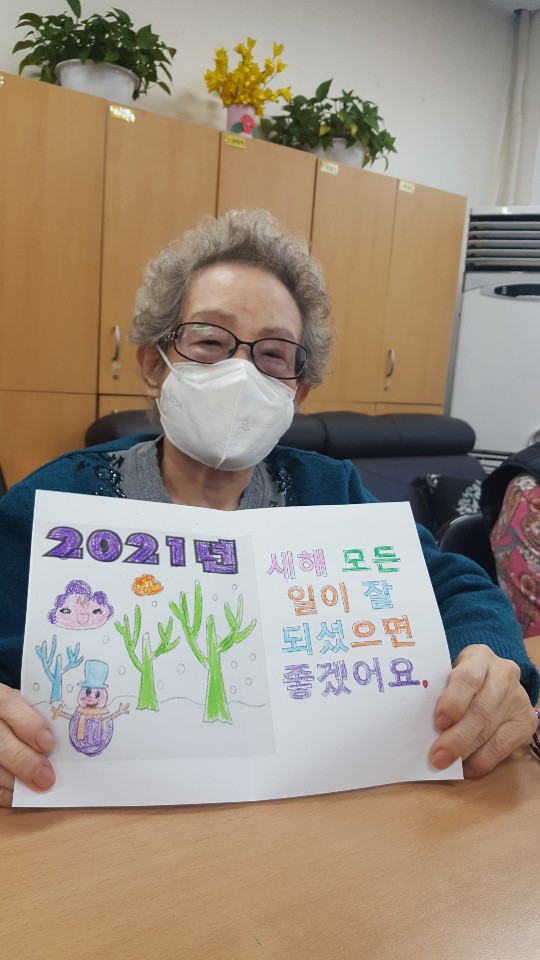 2021년
새해 모든
일이 잘
되셨으면
좋겠어요.